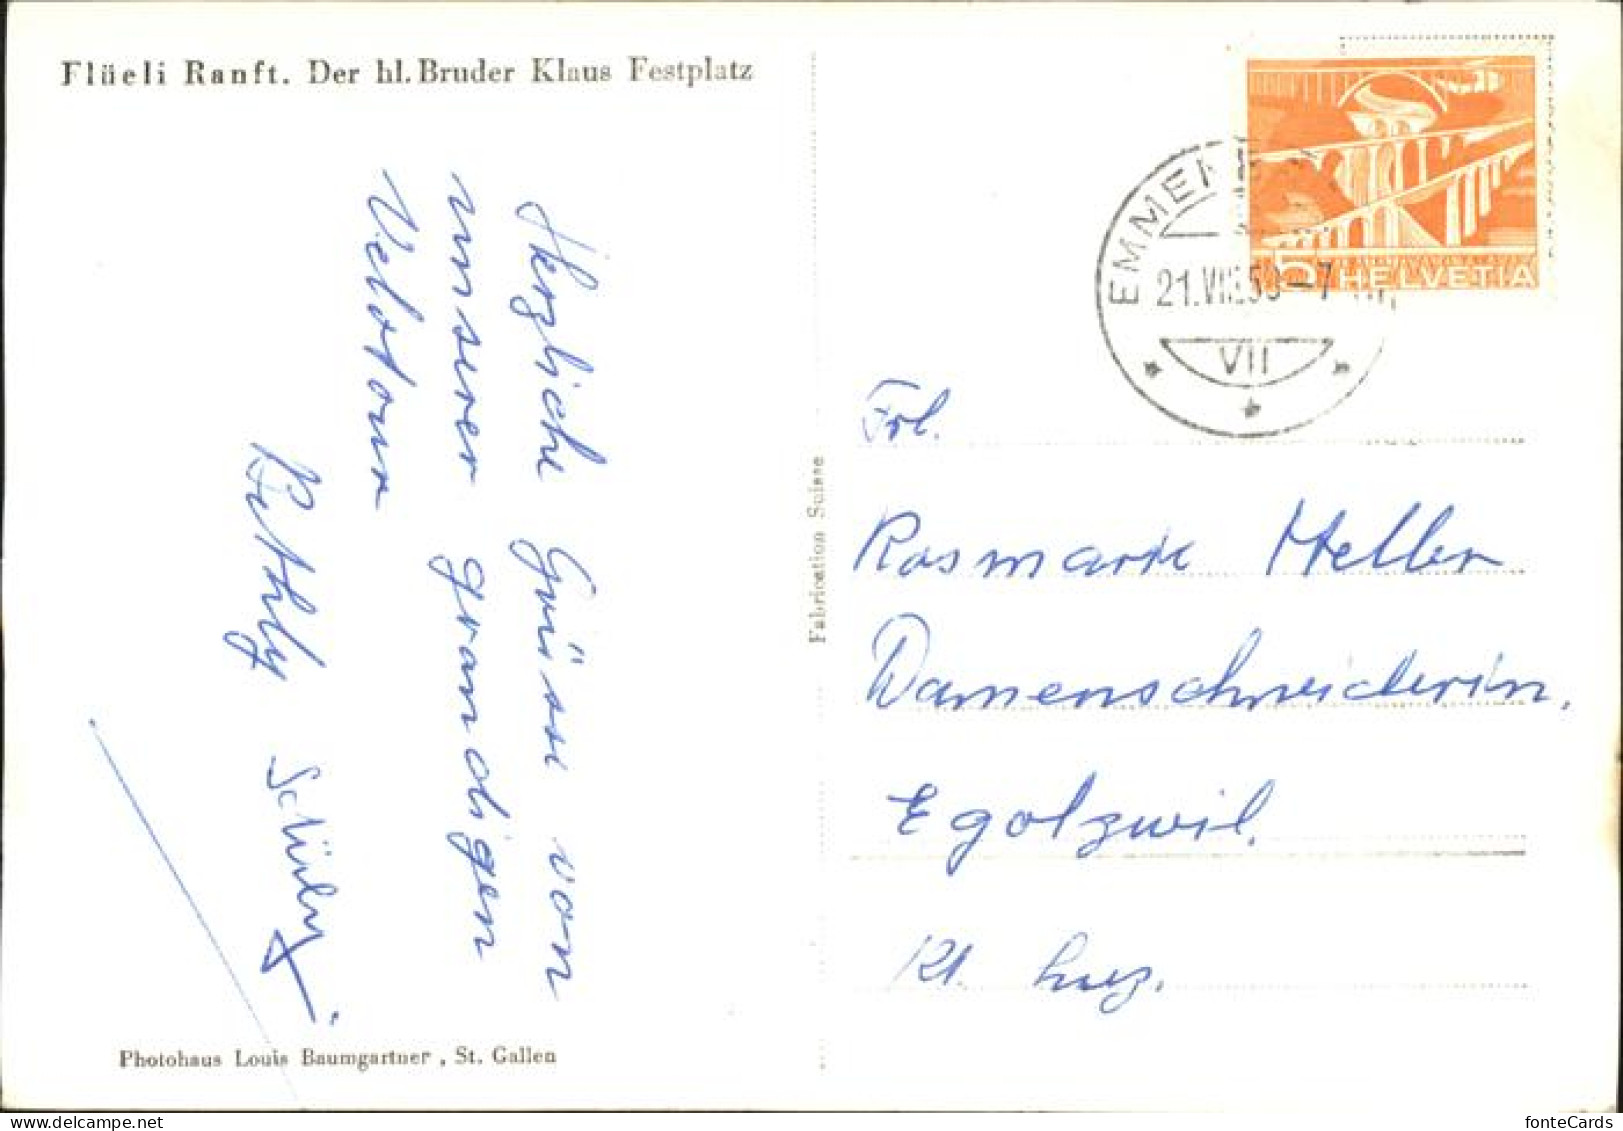 Flüeli Ranft. Der hl. Bruder Klaus Festplatz
Herzliche Grüsse von
unserer grandigen
Velotour
Bethly
Fabrication Suisse
Photohaus Louis Baumgartner, St. Gallen
5 HELVETIA
21.VIII.50-7
VII
Frl.
Rosmarie Heller
Damenschneiderin.
Egolzwil.
Kt. Luz.
https://www.delcampe.net
fonteCards